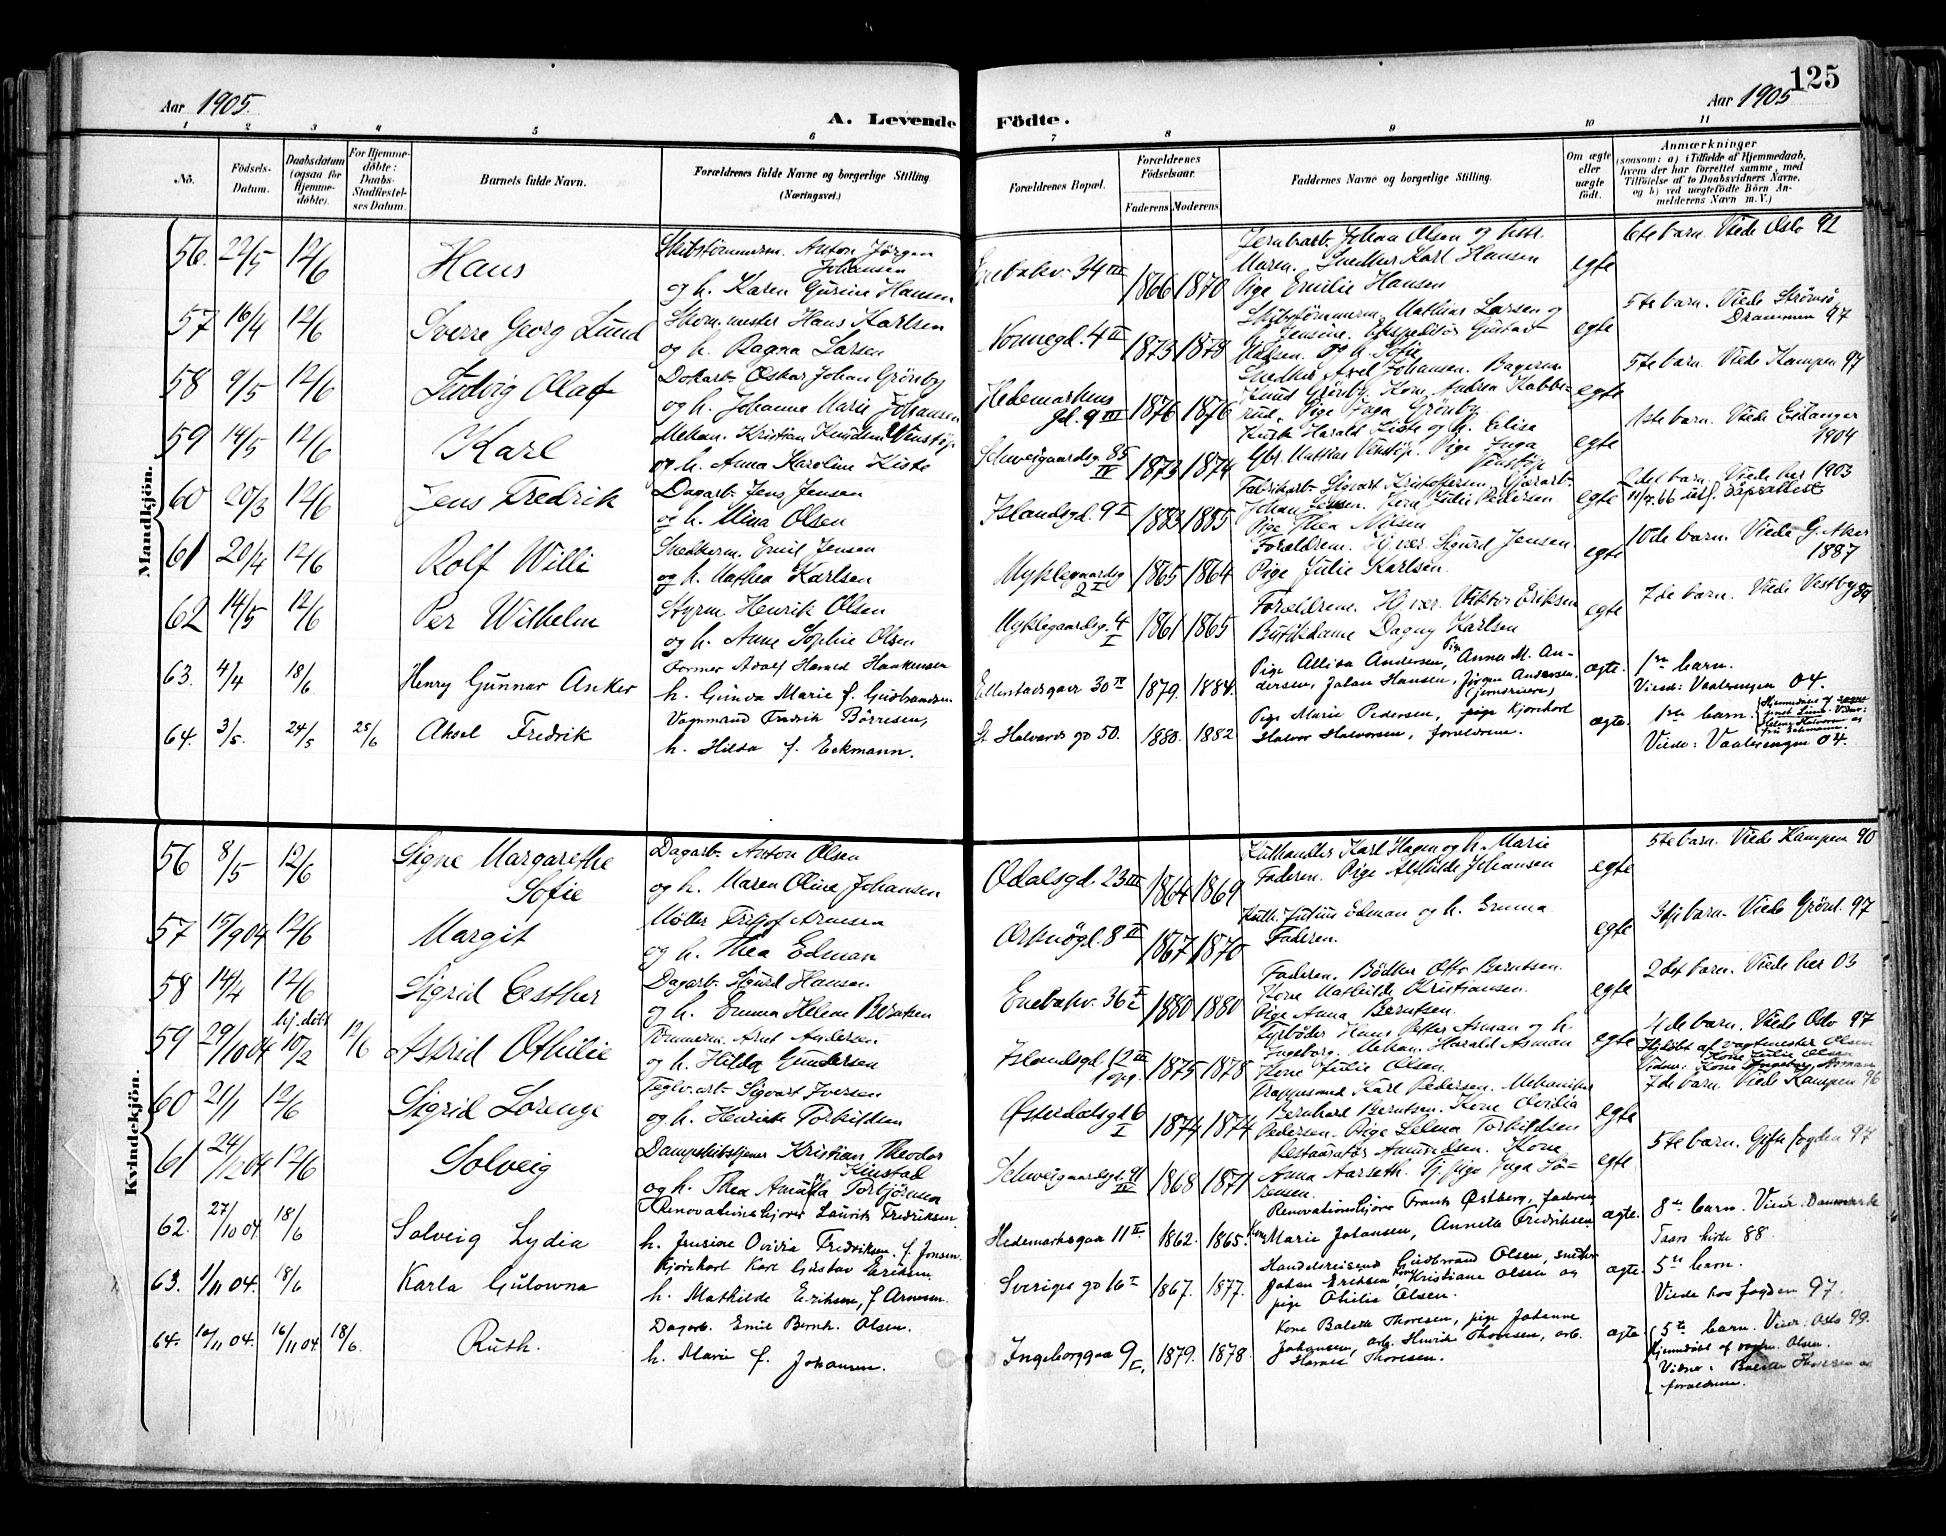 125
Aar 1905.
A. Levende Födte.
Aar 1905
1 2 3 4 5 6 7 8 9 10 11
No.
Födsels-Datum.
Daabsdatum (ogsaa for Hjemme-döbte).
For Hjemme-döbte: Daabs-Stadfæstel-ses Datum.
Barnets fulde Navn.
Forældrenes fulde Navne og borgerlige Stilling. (Næringsvei.)
Forældrenes Bopæl.
Forældrenes Födselsaar.
Faderens. Moderens.
Faddernes Navne og borgerlige Stilling.
Om ægte eller uægte födt.
Anmærkninger
(saasom: a) i Tilfælde af Hjemmedaab, hvem der har forrettet samme, med Tilföielse af to Daabsvidners Navne, og b) ved uægtefödte Börn An-melderens Navn m. V.)
Mandkjön.
56. 22/5 12/6 Hans
Anton Jörgen Johansen
og h. Karen Gurine Hansen
Enebakv. 34 III 1866 1870
Jernbarb. Johan Olsen og hstr.
Maren. Snedker Karl Hansen
Pige Emilie Hansen
egte
6te barn. Viede Oslo 92
57 16/4 12/6 Sverre Georg Lund
Skom.mester Hans Karlsen
og h. Ragna Larsen
Nonnegd. 4 II 1873 1878
Mathias Larsen og
h. Jensine. Gustav
og h. Sofie
egte
5te barn. Viede Strömsö,
Drammen 97
58 9/5 12/6 Ludvig Olaf
Dokarb. Oskar Johan Grönby
og h. Johanne Marie Johansen
Hedemarkens gd. 9 III 1876 1876
Snedker Axel Johansen. Bagersv.
Knud Grönby. Kone Andrea Kabbe-
rud. Pige Inga Grönby.
egte
5te barn. Viede Kampen 97
59 14/5 12/6 Karl
Mekan. Kristian Knudsen Venstöp
og h. Anna Karoline Kiste
Schweigaardsg. 85 IV 1873 1874
Kusk Harald Kiste og h. Elisa
Gbr. Mathias Venstöp. Pige Inga
Venstöp
egte
1ste barn. Viede Eidanger
1904
60 20/3 12/6 Jens Fredrik
Dagarb. Jens Jensen
og h. Mina Olsen
Islandsgd. 9 I 1883 1885
Fabrikarb. Sigvart Kristofersen. Gjörarb.
Johan Jensen. Kone Julie Pedersen
Pige Thea Nilsen
egte
2det barn. Viede her 1903
61 20/4 12/6 Rolf Willi
Snedkerm. Emil Jensen
og h. Mathea Karlsen
Myklegaardsg 2 I 1865 1864
Forældrene. Hj.vær. Sigurd Jensen.
Pige Julie Karlsen.
egte
10de barn. Viede G. Aker
1887
62 14/5 12/6 Per Wilhelm
Styrm. Henrik Olsen
og h. Anne Sophie Olsen
Myklegaardsg. 4 I 1861 1865
Forældrene. Hj.vær. Viktor Eriksen
Butikdame Dagny Karlsen
egte
7de barn. Viede Vestby 89
63. 4/4 18/6 Henry Gunnar Anker
Former Adolf Harald Haakensen
h. Gunda Marie f. Gudbrandsen
Ellerstadsgaa 30 IV 1879. 1884.
Pige Allisa Andersen, Pige Anna M. An-
dersen, Johan Hansen, Jörgen Andersen.
(jernskriver)
ægte.
1ste barn.
Viede: Vaalerengen 04.
64. 3/5. 24/5 25/6 Aksel Fredrik
Vognmand Fredrik Börresen,
h. Hilda f. Eckmann.
St. Halvards gd 50. 1880. 1882
Pige Marie Pedersen, pige Kjörkord
Halvor Halvorsen, forældrene.
ægte.
1ste barn.
Viede: Vaalerengen 04.
Kvindekjön.
56 8/5 12/6 Signe Margarethe
Sofie
Dagarb. Anton Olsen
og h. Maren Oline Johansen
Odalsgd. 23 III 1864 1869
Kulhandler Karl Hagen og h. Marie
Faderen. Pige Alfhilde Johansen
egte
5te barn. Viede Kampen 90
57 15/9 04 12/6 Margit
Möller Fritjof Arnesen
og h. Thea Edman
Orknögd. 8 II 1867 1870
Kulh. Julius Edman og h. Emma
Faderen.
egte
3dje barn. Viede Grönl. 97
58 14/4 12/6 Sigrid Esther
Dagarb. Sigurd Hansen
og h. Emma Helene Berntsen
Enebakv. 36 1880 1880
Faderen. Bödker Otto Berntsen.
Kone Mathilde Kristiansen.
Pige Anna Berntsen
egte
2det barn. Viede her 03
59 29/10 04 hj. döbt 10/2 12/6 Astrid Othilie
Tömmerm. Arnt Andersen
og h. Hilda Gundersen
Islandsgd 12 III 1 opg. 1875 1878
Fyrböder Hans Peter Asman og h.
Ingeborg. Mekan. Harald Asman
Kone Julie Olsen.
egte
4de barn. Viede Oslo 97
Hj.döbt af vagtmester Olsen
Vidner: Kone Julie Olsen
Kone Ingeborg Asman
60 21/1 12/6 Sigrid Lorenze
Teglv.arb. Sigvart Iversen
og h. Henrikke Torkildsen
Österdalsgd 6 I 1874 1874
Karl Pedersen. Mekaniker
Bernhard Berntsen. Kone Ovidia
Pedersen. Pige Selma Torkildsen
egte
7de barn. Viede Kampen 96
61 24/12 04 12/6 Solveig
Dampskibstjener Kristian Theodor
og h. Thea Amalia Torbjörnsen
Schweigaardsgd. 91 IV 1868 1871
Restauratör Amundsen. Kone
Anna Aarseth. Tj.pige Inga Sö-
rensen.
egte
5te barn. Gifte fogden 97
62. 27/10 04 18/6 Solveig Lydia
Renovationskjører Laurits Fredriksen.
h. Jensine Ovidia Fredriksen. f. Jensen.
Hedemarksgaa 11 II. 1862. 1865.
Renovationskjører Frants Østberg, faderen
Kone Marie Johansen, Annette Fredriksen
ægte.
8de barn. Viede: Danmark
Taars kirke 88.
63. 1/11 04. 18/6 Karla Gulowna
Kjörekarl Karl Gustav Eriksen
h. Mathilde Eriksen, f. Arnesen.
Sveriges gd 16 I 1867. 1877.
Handelsreisende Gudbrand Olsen, snedker
Johan Eriksen, Kone Kristiane Olsen og
pige Othilie Olsen.
ægte.
5te barn.
Viede hos fogden 97.
64. 10/11 04. 16/11 04 18/6. Ruth.
Dagarb. Emil Bernh. Olsen.
h. Marie f. Johansen.
Ingeborggaa 9 I. 1879. 1878.
Kone Bolette Thoresen, pige Johanne
Johansen, arb. Henrik Thoresen, arb.
Harald Thoresen.
ægte
5te barn. Viede: Oslo 99.
Hjemmedöbt af vagtm. Olsen.
Vidner: Bolette Thoresen og
forældrene.